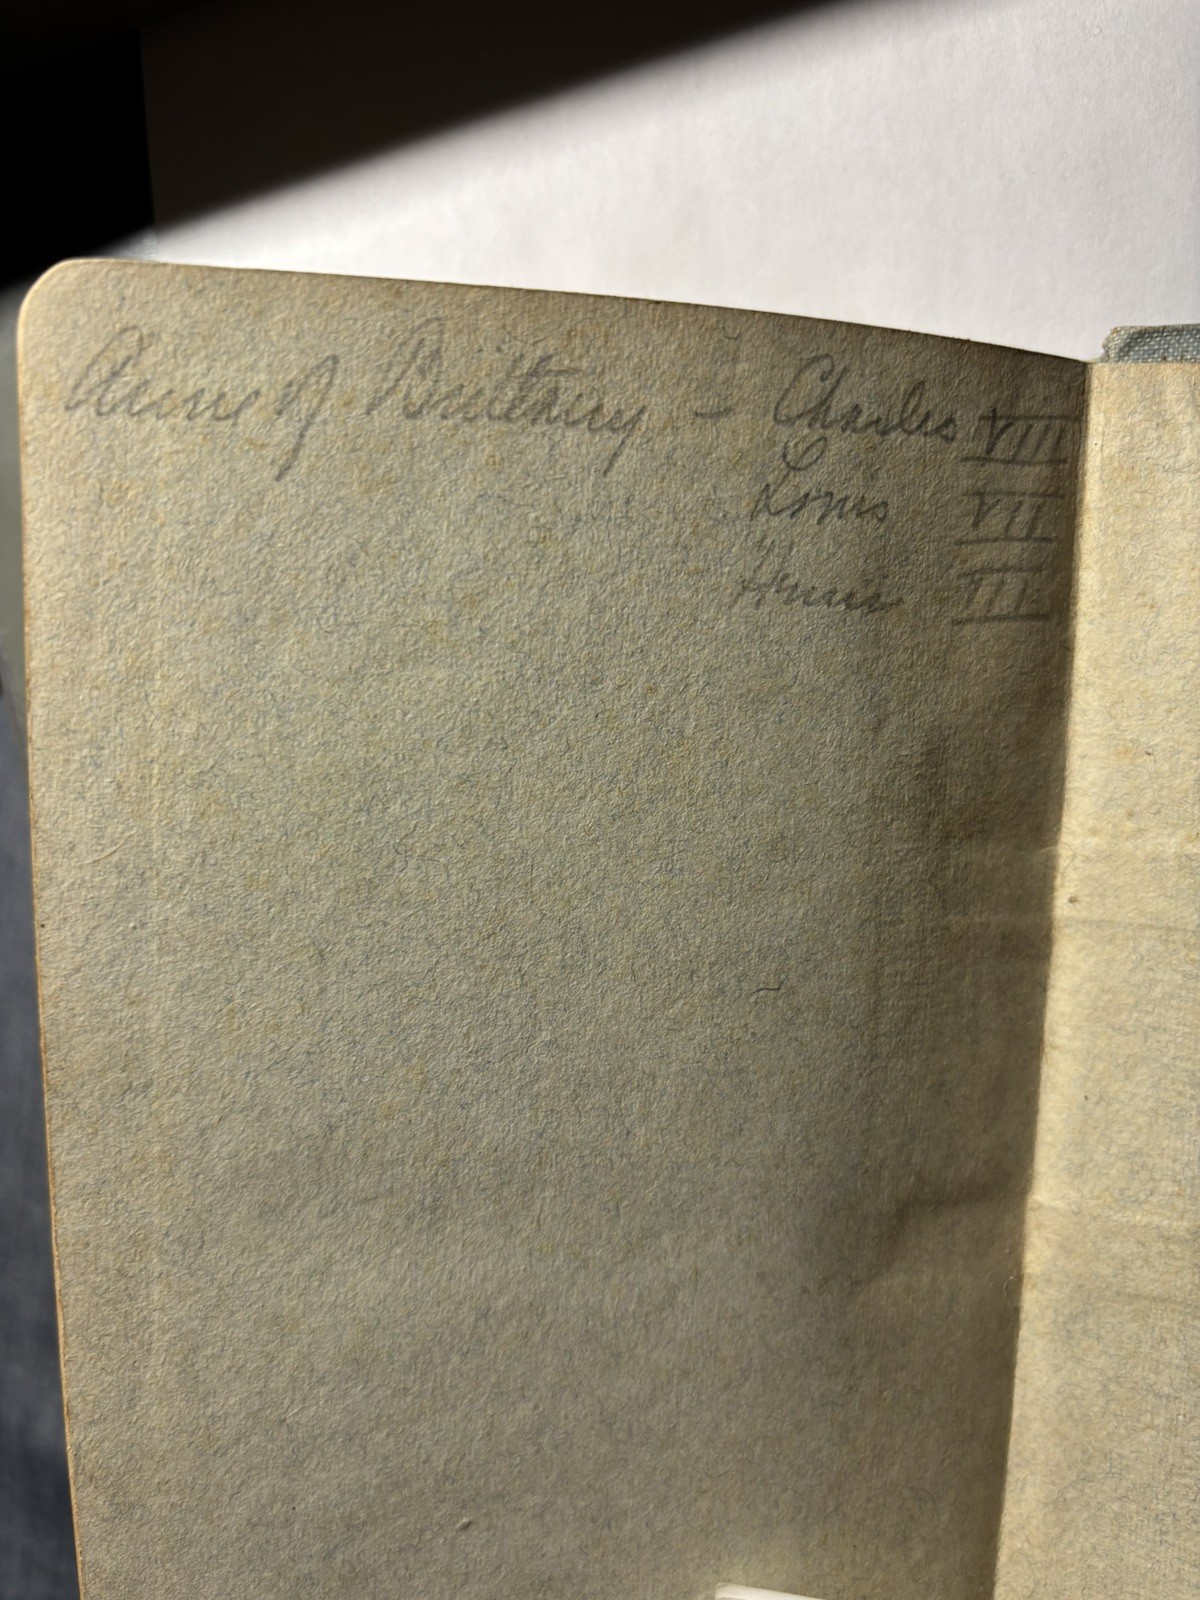 Anne of Brittany - Charles VIII
Louis VII
Henri III